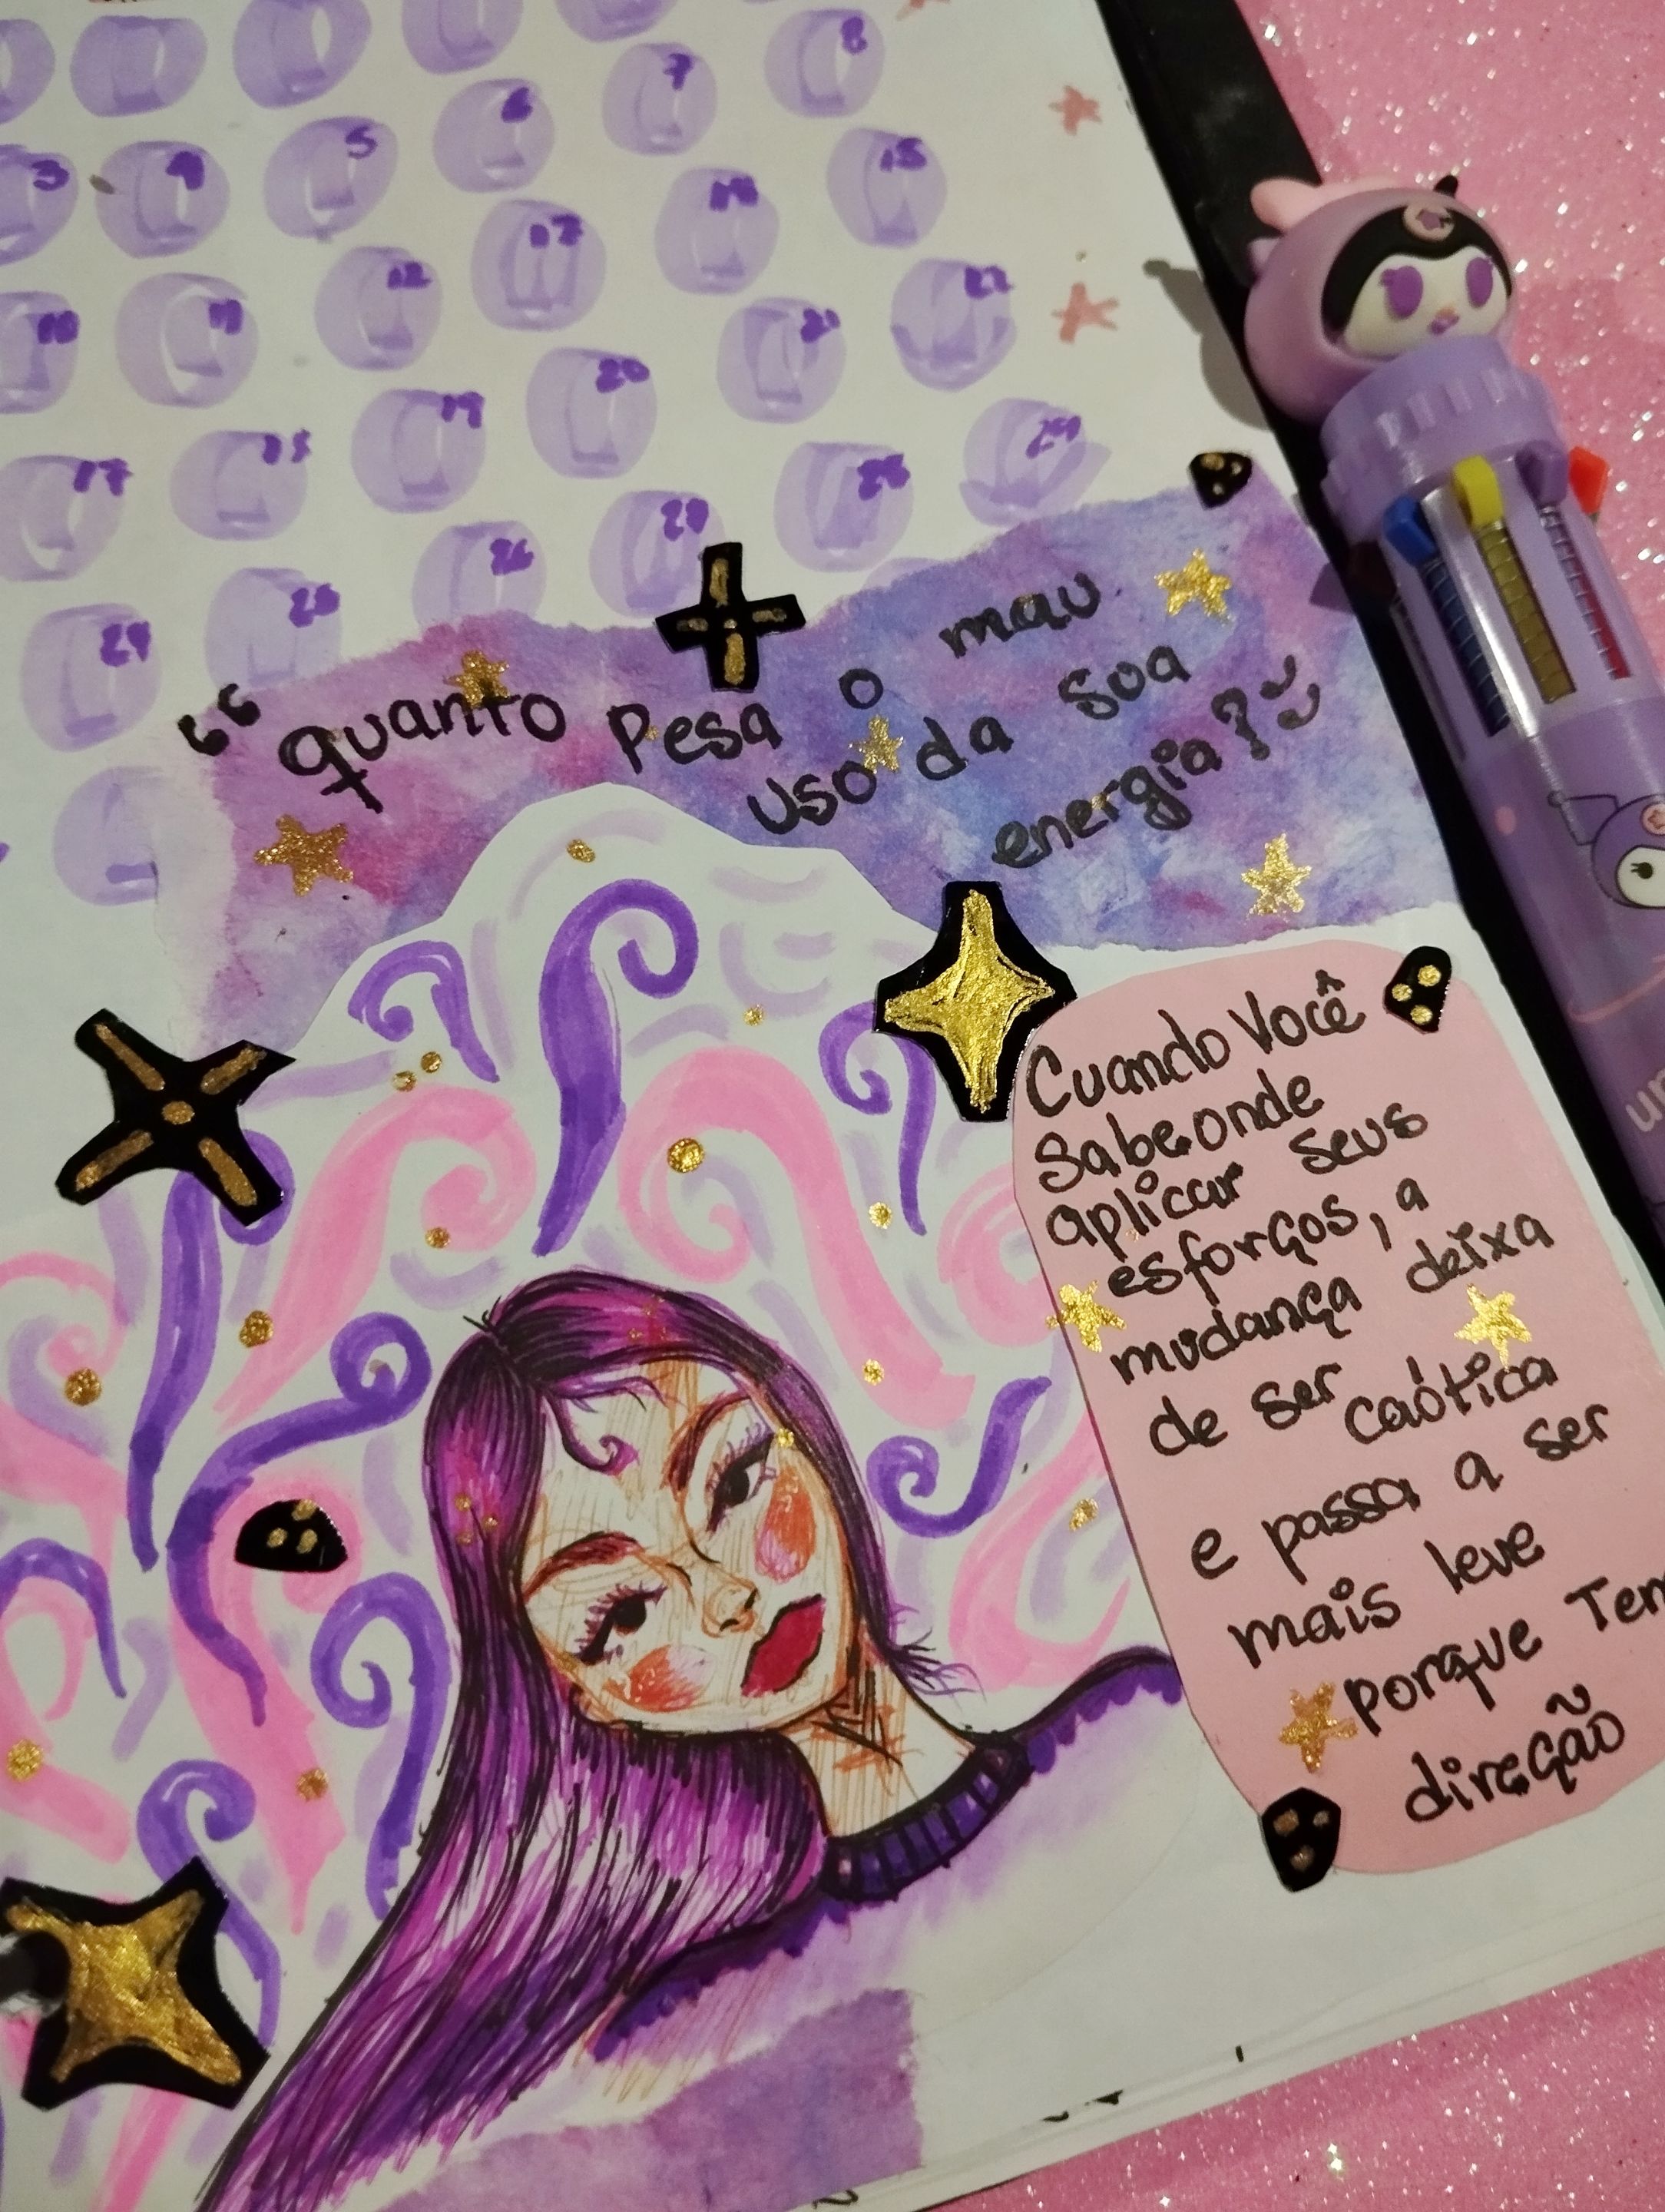 8
7
6
5
3 9
15
14
13
12
11
10
22
21
20
19
18
17
29
28
27
26
25
24
“ quanto pesa o mau
uso da sua
energia?
Cuando você
sabe onde
aplicar seus
esforços, a
mudança deixa
de ser caótica
e passa a ser
mais leve
porque Tem
direção